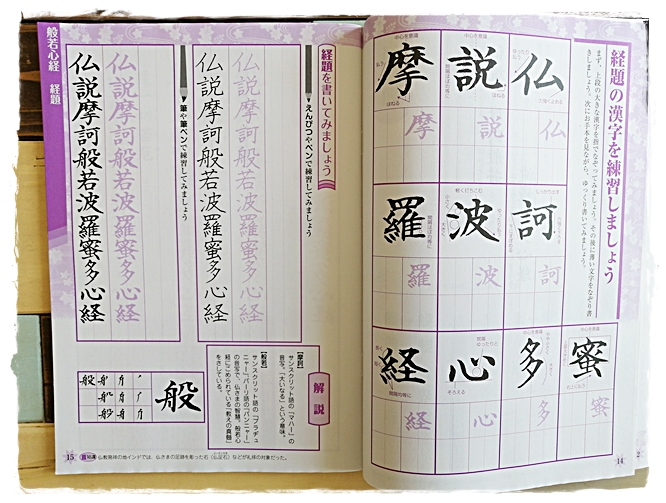 経題の漢字を練習しましょう
まず、上段の大きな漢字を指でなぞってみましょう。その後に薄い文字をなぞり書
きしましょう。次にお手本を見ながら、ゆっくり書いてみましょう。
仏
説
摩
仏
説
摩
訶
波
羅
訶
波
羅
蜜
多
心
経
蜜
多
心
経
14
経題を書いてみましょう
えんぴつやペンで練習してみましょう
仏説摩訶般若波羅蜜多心経
仏説摩訶般若波羅蜜多心経
筆や筆ペンで練習してみましょう
仏説摩訶般若波羅蜜多心経
仏説摩訶般若波羅蜜多心経
般若心経 経題
解説
【摩訶】
サンスクリット語の「マハー」の
音写。「大いなる」という意味。
【般若】
サンスクリット語の「プラデュ
ニャー」、パーリ語の「パンニャー」
の音写で、仏さまの智慧。般若心
経にこめられている「教えの真髄」
をさしている。
般
15
仏教発祥の地インドでは、仏さまの足跡を彫った石(仏足石)などが礼拝の対象だった。